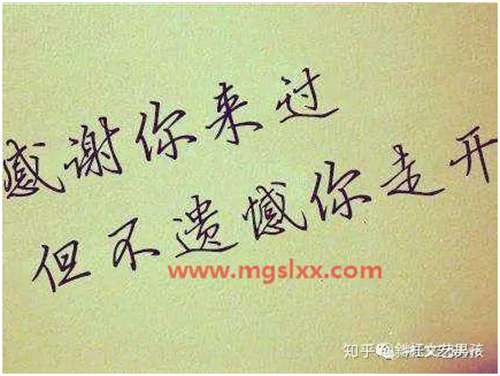 感谢你来过
但不遗憾你走开
www.mgslxx.com
知乎 文艺男孩